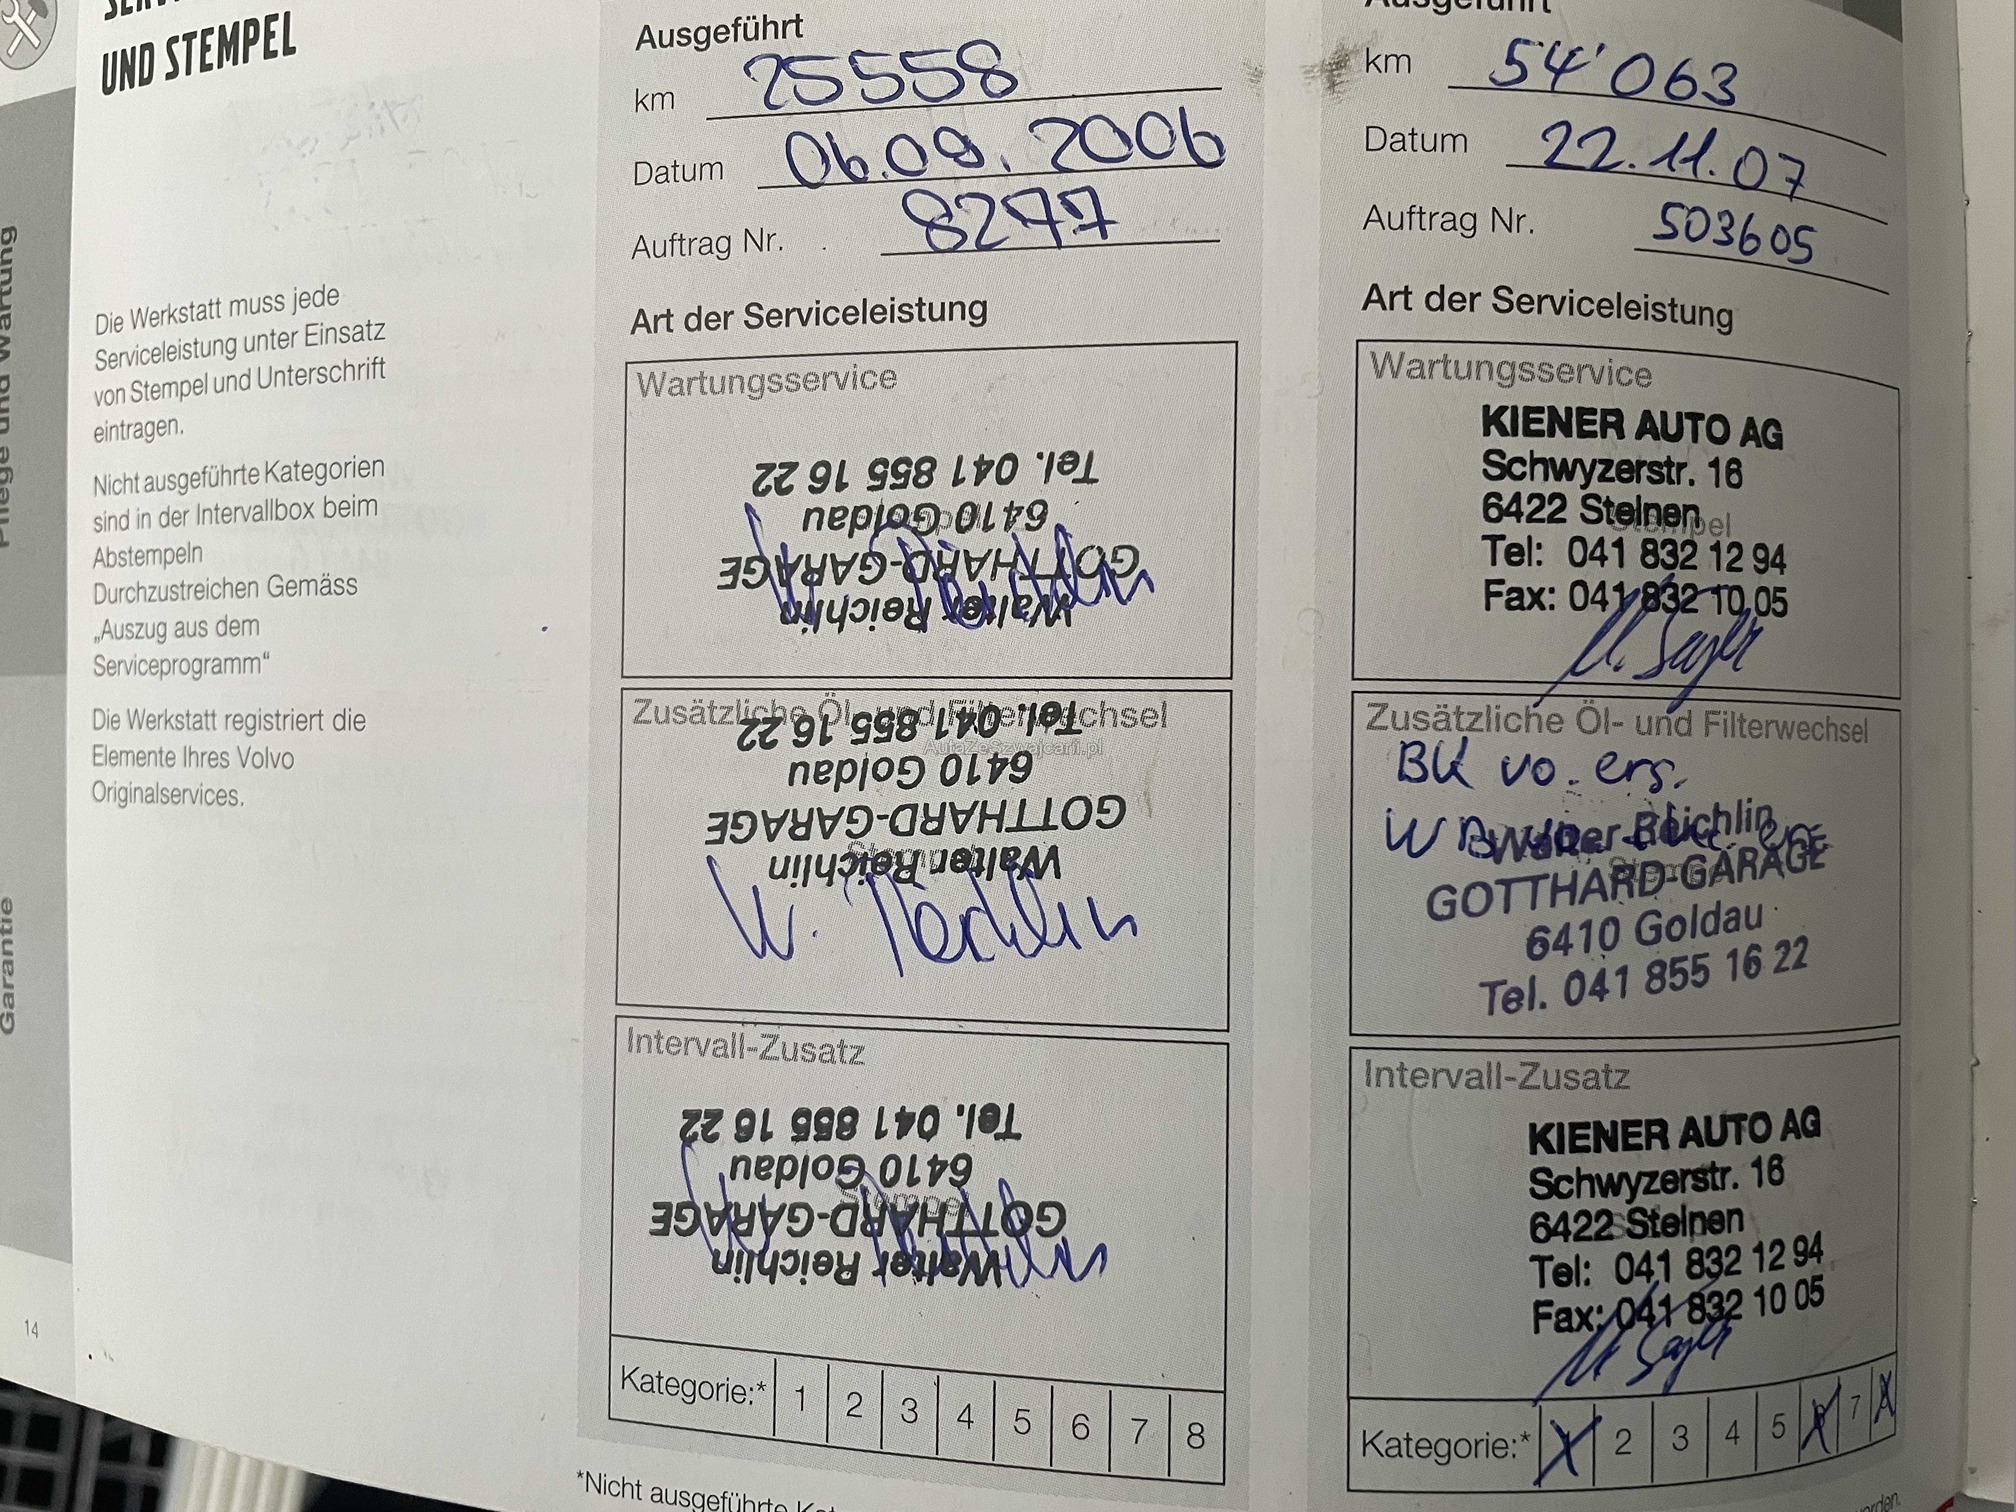 UND STEMPEL
Die Werkstatt muss jede
Serviceleistung unter Einsatz
von Stempel und Unterschrift
eintragen.
Nicht ausgeführte Kategorien
sind in der Intervallbox beim
Abstempeln
Durchzustreichen Gemäss
„Auszug aus dem
Serviceprogramm“
Die Werkstatt registriert die
Elemente Ihres Volvo
Originalservices.
Pflege und Wartung
Garantie
14
Ausgeführt
km 25558
Datum 06.09.2006
Auftrag Nr. 8277
Art der Serviceleistung
Wartungsservice
Walter Reichlin
GOTTHARD-GARAGE
6410 Goldau
Tel. 041 855 16 22
Zusätzliche Öl- und Filterwechsel
AutaZeSzwajcarii.pl
Walter Reichlin
GOTTHARD-GARAGE
6410 Goldau
Tel. 041 855 16 22
W. Reichlin
Intervall-Zusatz
Stempel
Walter Reichlin
GOTTHARD-GARAGE
6410 Goldau
Tel. 041 855 16 22
Kategorie:* 1 2 3 4 5 6 7 8
*Nicht ausgeführte
Ausgeführt
km 54'063
Datum 22.11.07
Auftrag Nr. 503605
Art der Serviceleistung
Wartungsservice
KIENER AUTO AG
Schwyzerstr. 16
6422 Steinen
Stempel
Tel: 041 832 12 94
Fax: 041 832 10 05
Zusätzliche Öl- und Filterwechsel
BK vo. ers.
Walter Reichlin
GOTTHARD-GARAGE
6410 Goldau
Tel. 041 855 16 22
Intervall-Zusatz
KIENER AUTO AG
Schwyzerstr. 16
6422 Steinen
Tel: 041 832 12 94
Fax: 041 832 10 05
Kategorie:* 2 3 4 5 7